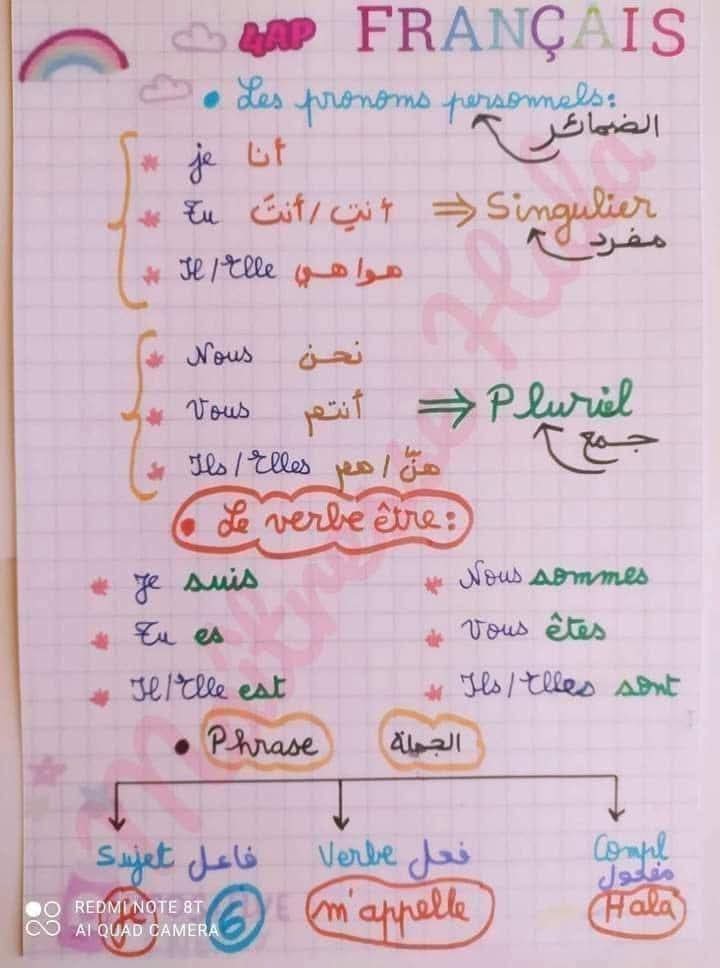 4AP FRANÇAIS
• Les pronoms personnels:
الضمائر
je أنا
Tu أنتِ/أنتَ ⇒ Singulier
مفرد
Il/Elle هو/هي
Nous نحن
Vous أنتم ⇒ Pluriel
جمع
Ils/Elles هم/هنّ
• Le verbe être:
Je suis
Nous sommes
Tu es
Vous êtes
Il/Elle est
Ils/Elles sont
• Phrase الجملة
Sujet فاعل
Verbe فعل
Compl
مفعول
6
m'appelle
Hala
Maîtresse Hala
REDMI NOTE 8T
AI QUAD CAMERA